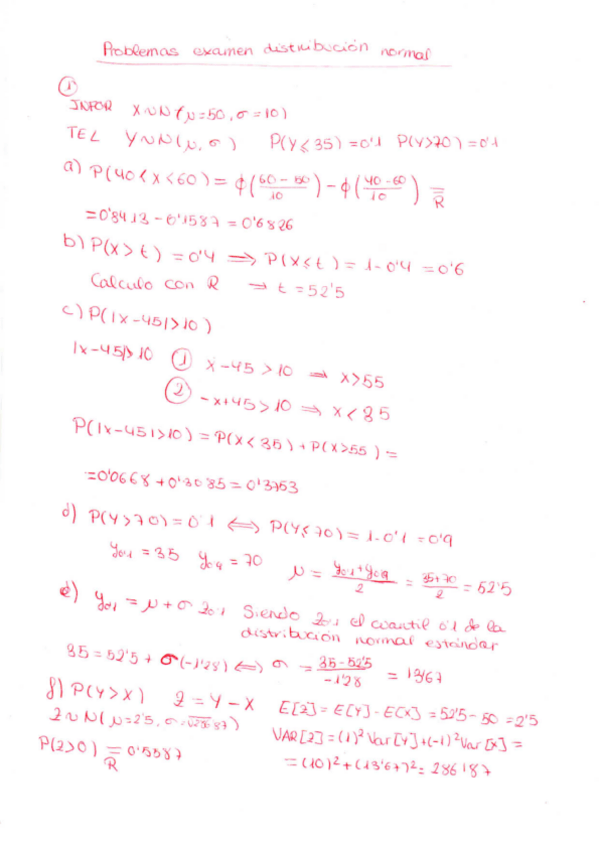 Problemas examen distribución normal
①
INFOR X∼N(μ=50, σ=10)
TEL Y∼N(μ, σ) P(Y≤35)=0'1 P(Y>70)=0'1
a) P(40<X<60) = ϕ(60-50/10) - ϕ(40-60/10) =R
=0'8413-0'1587=0'6826
b) P(X>t) = 0'4 ⟹ P(X≤t) = 1-0'4 = 0'6
Calculo con R → t=52'5
c) P(|X-45|>10)
|X-45|>10 ① X-45>10 ⟹ X>55
② -X+45>10 ⟹ X<35
P(|X-45|>10) = P(X<35)+P(X>55) =
=0'0668+0'3085=0'3753
d) P(Y>70)=0'1 ⟺ P(Y≤70)=1-0'1=0'9
y0'1 = 35 y0'9 = 70 μ = y0'1+y0'9/2 = 35+70/2 = 52'5
e) y0'1 = μ + σ z0'1 Siendo z0'1 el cuantil 0'1 de la
distribución normal estándar
35=52'5+σ(-1'28) ⟺ σ = 35-52'5/-1'28 = 13'67
f) P(Y>X) Z = Y-X E[Z] = E[Y]-E[X] = 52'5-50 = 2'5
Z∼N(μ=2'5, σ=
VAR[Z] = (1)²Var[Y]+(-1)²Var[X] =
P(Z>0) =R 0'5587
= (10)²+(13'67)²= 286'87